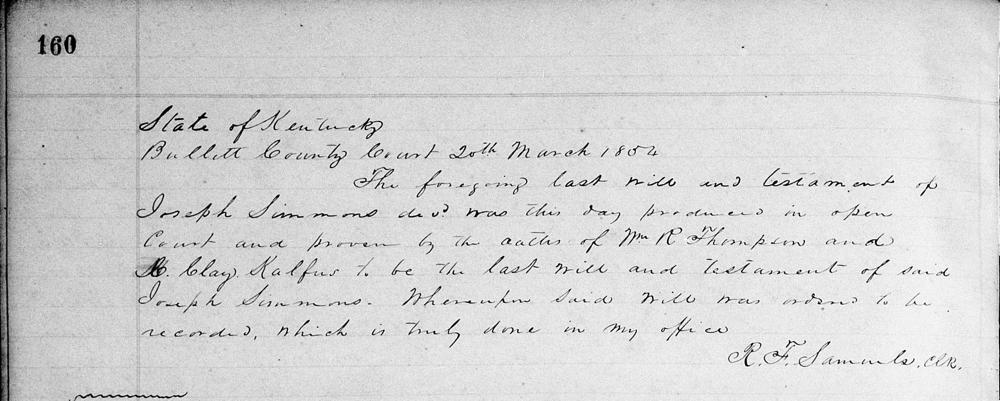 160
State of Kentucky
Bullitt County Court 20th March 1854
The foregoing last will and testament of
Joseph Simmons decd was this day produced in open
Court and proven by the oaths of Wm R Thompson and
H. Clay Kalfus to be the last will and testament of said
Joseph Simmons. Whereupon said will was ordered to be
recorded, which is truly done in my office
R. F. Samuels. Clk.